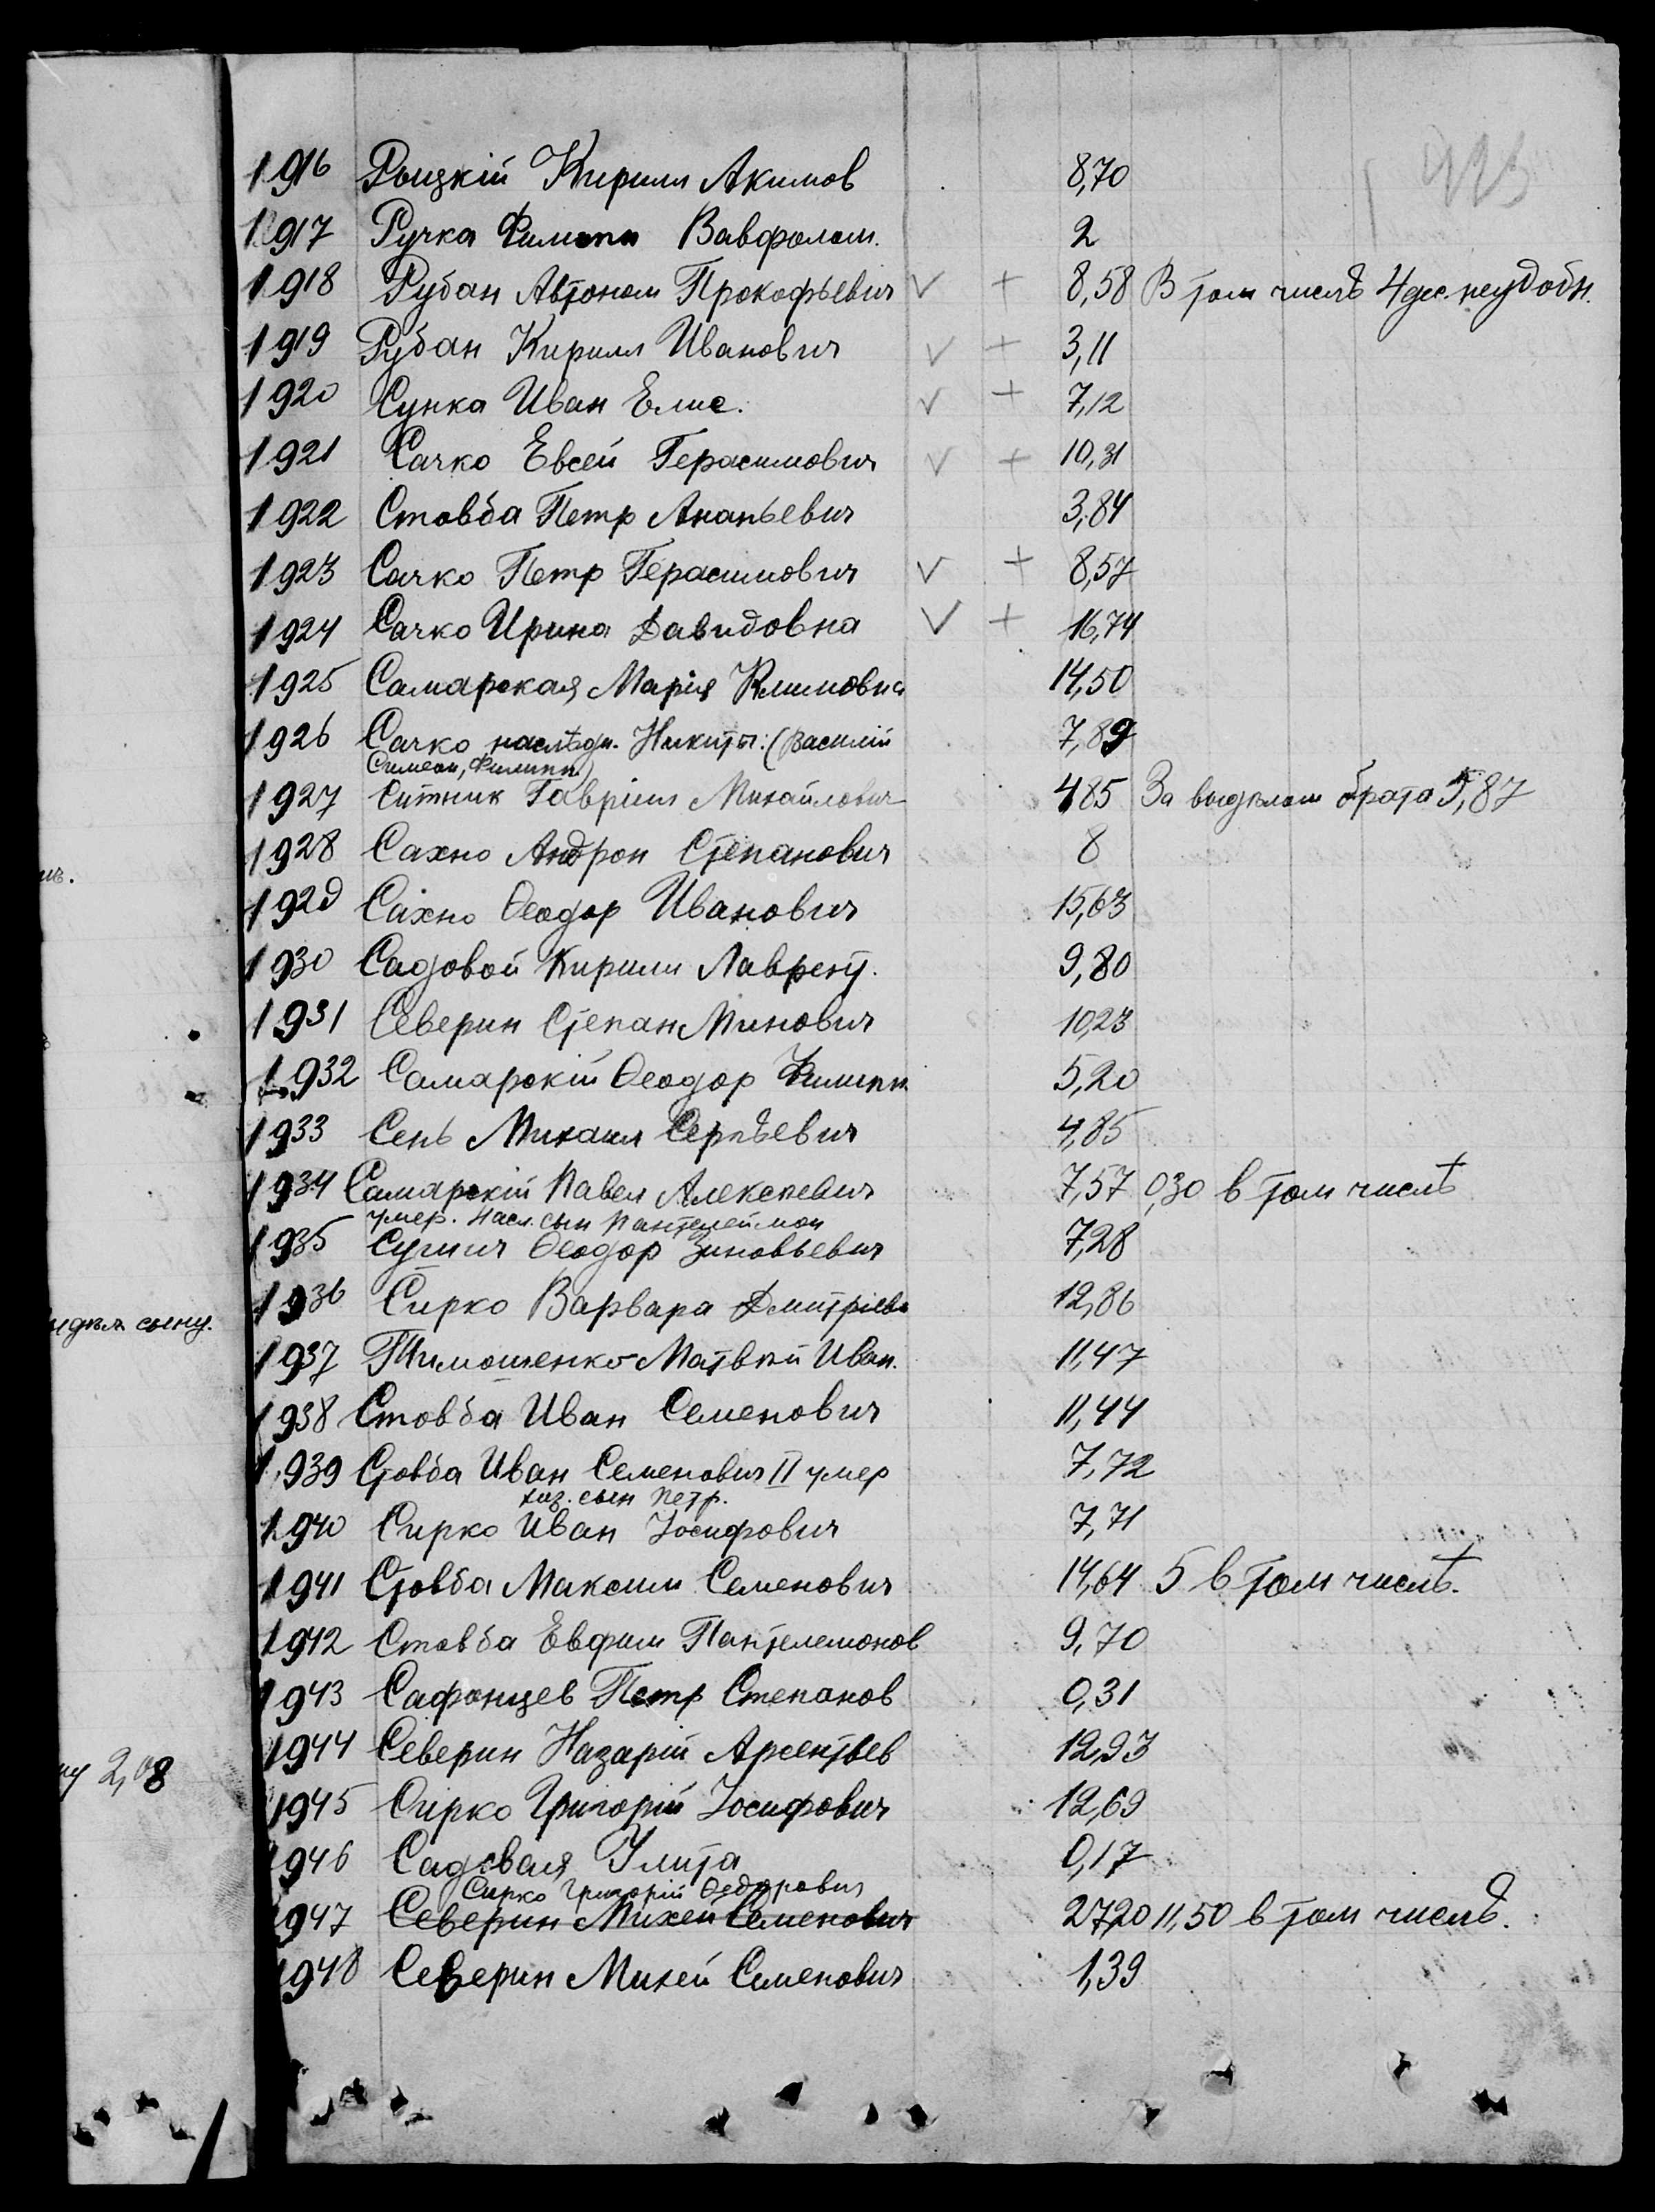 1916 Рыцкій Кирилл Акимов 8,70
1917 Ручка Филипп Вавфолом. 2
1918 Рубан Автоном Прокофьевич V + 8,58 В том числѣ 4 дес. неудобн.
1919 Рубан Кирилл Иванович V + 3,11
1920 Супка Иван Елис. V + 7,12
1921 Сачко Евсей Герасимович V + 10,31
1922 Стовба Петр Ананьевич 3,84
1923 Сачко Петр Герасимович V + 8,57
1924 Сачко Ирина Давидовна V + 16,74
1925 Самарская Марія Климовна 14,50
1926 Сачко наслѣдн. Никиты: (Василій 7,89
Симеон, Филипп)
1927 Ситник Гавріил Михайлович 4,85 За выделом брата 5,87
1928 Сахно Андрон Степанович 8
1929 Сахно Ѳеодор Иванович 15,63
1930 Садовой Кирилл Лаврент. 9,80
1931 Северин Степан Минович 10,23
1932 Самарскій Ѳеодор Филипп. 5,20
1933 Сень Михаил Сергѣевич 4,85
1934 Самарскій Павел Алексеевич 7,57 0,30 в том числѣ
умер. Насл. сын Пантелеймон
1935 Ѳеодор Зиновьевич 7,28
1936 Сирко Варвара Дмитріев 12,86
1937 Тимошенко Матвѣй Иван. 11,47
1938 Стовба Иван Семенович 11,44
1939 Стовба Иван Семенович II умер 7,72
хоз. сын Петр.
1940 Сирко Иван Іосифович 7,71
1941 Стовба Максим Семенович 14,64 5 в том числѣ.
1942 Стовба Евфим Пантелемонов 9,70
1943 Сафонцев Петр Степанов 0,31
1944 Северин Назарій Арсентьев 12,93
1945 Сирко Григорій Іосифович 12,69
1946 Садовая Улита 0,17
Сирко Григорій Ѳедорович
1947 Северин Михей Семенович 27,20 11,50 в том числѣ.
1948 Северин Михей Семенович 1,39
сыну.
2,08